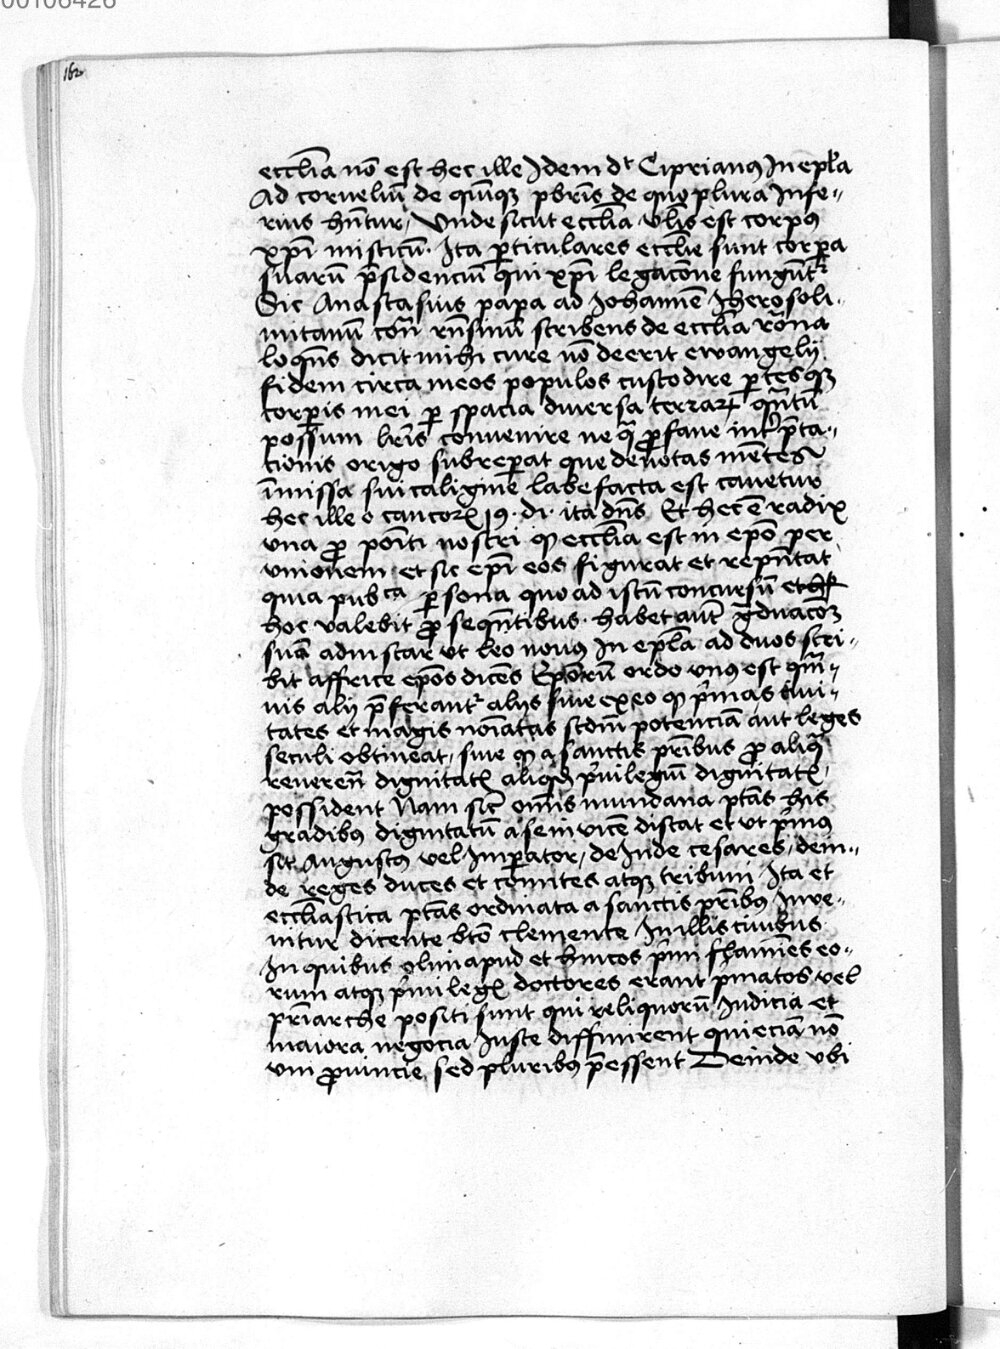 00106426
162
eccl̄ia nō est hec ille Idem dt Ciprianus In epl̄a
Ad corneliū de quīq3 pbrīs de quo plura Infe-
rius hn̄tur, Unde sicut eccl̄ia vl̄is est corpus
xp̄i misticū. Ita p̄ticulares eccl̄ie sunt corp̄a
suarū p̄sidenciū qui xp̄i legacōne fungūtr
Sic Anastasius papa ad Johannē Jherosoli-
mitanū scribens de eccl̄ia rōna
loquēs dicit mihi cure nō deerit ewangelij
fidem circa meos populos custodire p̄tesq3
corp̄is mei p̄ spacia diuersa terrar̄ qn̄tū
possum lr̄is conuenire ne q̄ p̄fane int̄p̄ta-
tionis origo subrep̄at que deuotas mētes
īmissa sui caligine labefacta est cauetur
hec ille 19. di. ita dn̄s Et hec ē radix
vna p̄ nostri q eccl̄ia est in ep̄o per
vnionem et sic ep̄i eos figurat et rep̄n̄tat
quia pubca p̄sona quo ad istū concursū et
hoc valebit p̄ seqn̄tibus. habet aūt ḡduacōꝫ
suā ad instar vt leo nonus In epl̄a ad duos scri-
bit affrice ep̄os dicēs Ep̄orū ordo vnus est q̄m-
uis alij p̄ferantr alijs siue ex eo q p̄mas ciui-
tates et magis noīatas scdm̄ potenciā aut leges
seculi obtineat, siue q a sanctis pr̄ibus p̄ aliq̄
reueren̄ dignitatꝭ aliqd̄ p̄uilegiū dignitatꝭ,
possident Nam sic̄ om̄is mundana ptās his
gradibꝰ dignitatū a se inuicē distat et vt p̄mus
sit Augustꝰ vel Imp̄ator, de Inde cesares, dein-
de reges duces et comites atq3 tribuni Ita et
eccl̄iastica ptās ordinata a sanctis pr̄ibꝰ Inue-
nitur dicente bt̄o clemente In illis ciuibus
In quibus olim apud ethnicos p̄mi flamīes eo-
rum atq3 p̄mi legꝭ doctores erant p̄matos vel
pr̄iarche positi sunt qui reliquorū Iudicia et
maiora negocia Juste diffinirent qui eciā nō
vni p̄uincie sed pluribꝰ p̄essent Deinde vbi